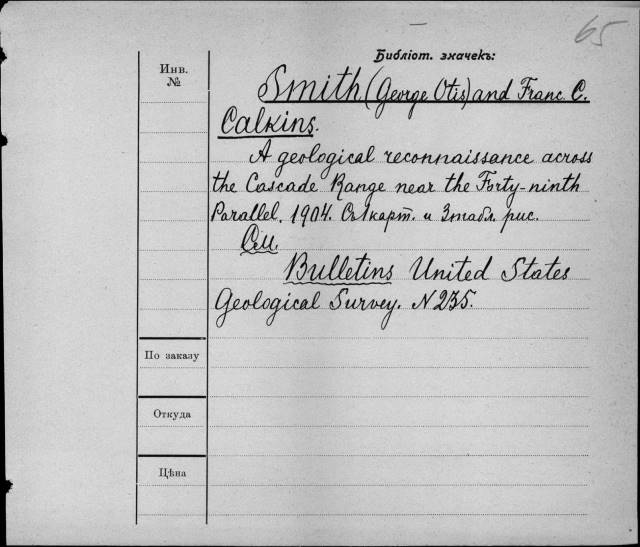 65
Библіот. значекъ:
Инв.
№
Smith (George Otis) and Franc C.
Calkins.
A geological reconnaissance across
the Cascade Range near the Forty-ninth
Parallel. 1904. Съ 1 карт. и 3 табл. рис.
См.
Bulletins United States
Geological Survey. N 235.
По заказу
Откуда
Цѣна